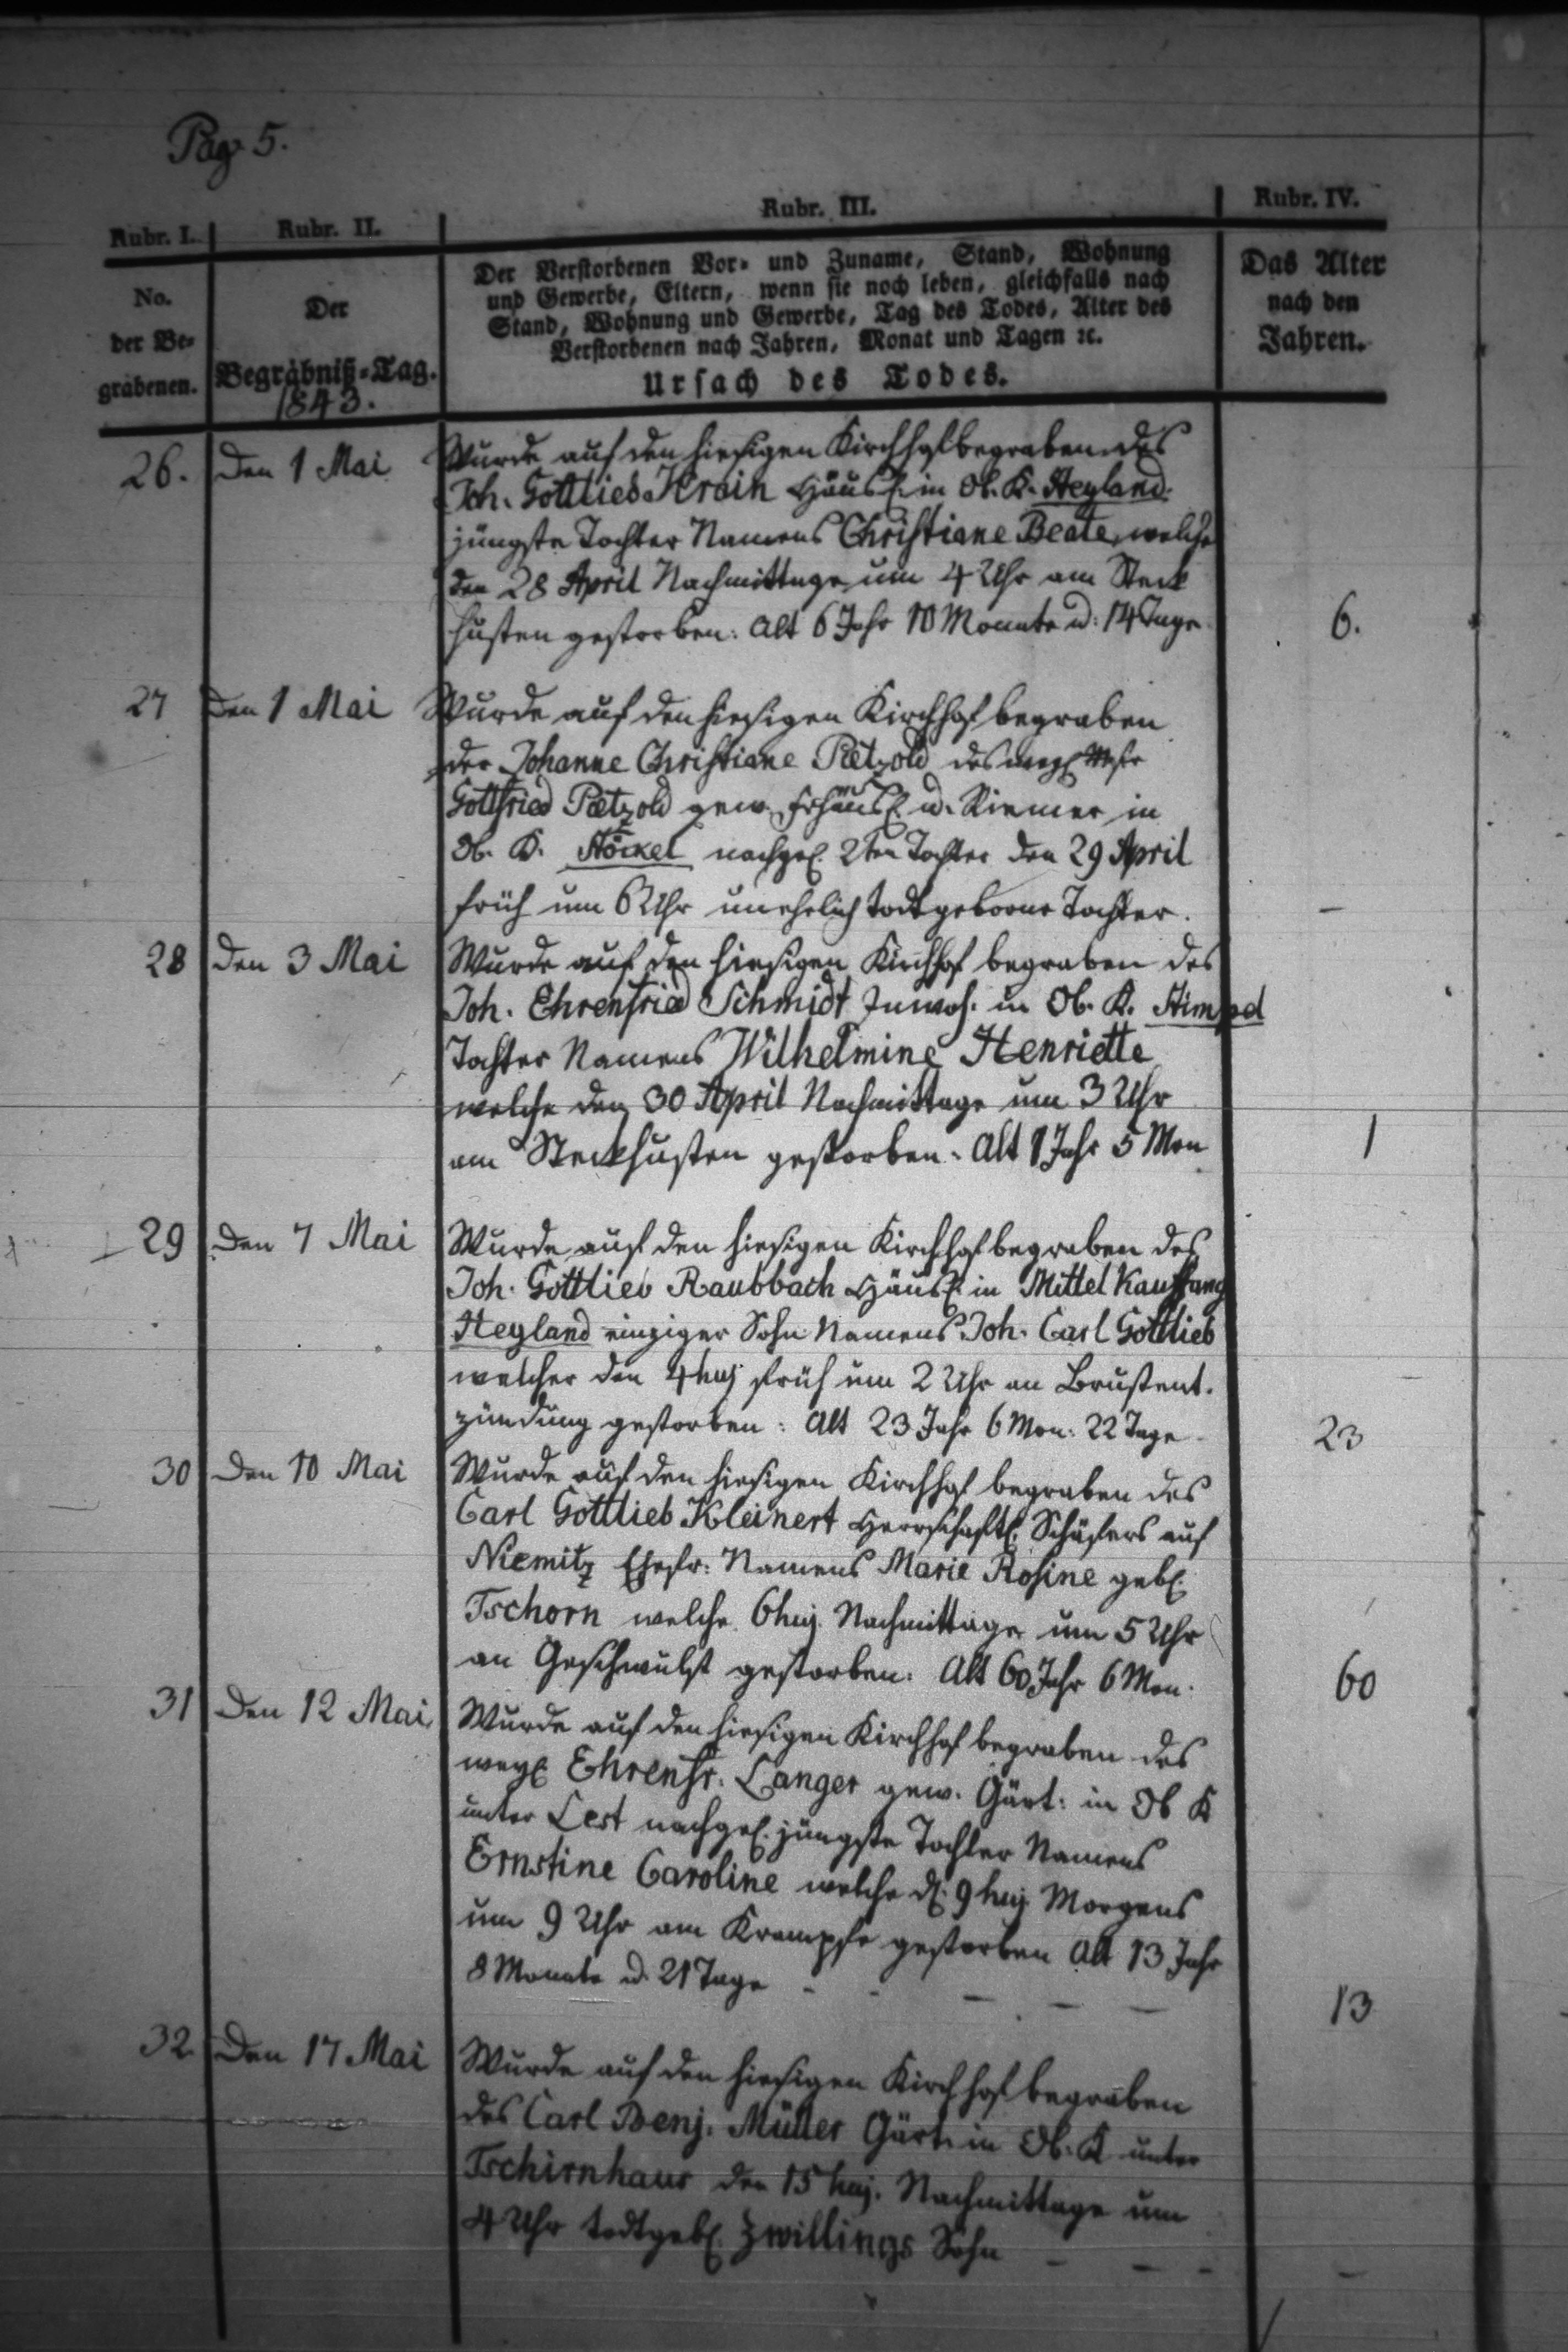 Pag. 5.
Rubr. I. Rubr. II. Rubr. III. Rubr. IV.
No. der Be- grabenen.
Der Begräbniß-Tag.
1843.
Der Verstorbenen Vor- und Zuname, Stand, Wohnung
und Gewerbe, Eltern, wenn sie noch leben, gleichfalls nach
Stand, Wohnung und Gewerbe, Tag des Todes, Alter des
Verstorbenen nach Jahren, Monat und Tagen ꝛc.
Ursach des Todes.
Das Alter
nach den
Jahren.
26. Den 1 Mai Wurde auf den hiesigen Kirchhof begraben des
Joh. Gottlieb Krain Häusl. in Ob. K. Heyland
jüngste Tochter Namens Christiane Beate, welche
den 28 April Nachmittage um 4 Uhr am Steck
husten gestorben: Alt 6 Jahr 10 Monate u: 14 Tage. 6.
27 Den 1 Mai Wurde auf den hiesigen Kirchhof begraben
der Johanne Christiane Pätzold des weyl. Mstr
Gottfried Pätzold gew. Frhäusl. u. Riemer in
Ob. K. Stöckel nachgel. 2ten Tochter den 29 April
früh um 6 Uhr unehelich todtgeborne Tochter. –
28 Den 3 Mai Wurde auf den hiesigen Kirchhof begraben des
Joh. Ehrenfried Schmidt Inwoh. in Ob. K. Stimpel
Tochter Namens Wilhelmine Henriette
welche den 30 April Nachmittage um 3 Uhr
am Steckhusten gestorben. Alt 1 Jahr 5 Mon 1
29 Den 7 Mai Wurde auf den hiesigen Kirchhof begraben des
Joh. Gottlieb Raubbach Häusl. in Mittel Kauffung
Heyland einziger Sohn Namens Joh. Carl Gottlieb
welcher den 4 huj früh um 2 Uhr an Brustent-
zündung gestorben: Alt 23 Jahr 6 Mon: 22 Tage 23
30 Den 10 Mai Wurde auf den hiesigen Kirchhof begraben des
Carl Gottlieb Kleinert Herrschaftl. Schäfers auf
Niemitz Ehefr: Namens Marie Rosine gebl.
Tschorn welche 6 huj. Nachmittage um 5 Uhr
an Geschwulst gestorben: Alt 60 Jahr 6 Mon. 60
31 Den 12 Mai Wurde auf den hiesigen Kirchhof begraben des
weyl. Ehrenfr. Langer gew. Gärt: in Ob K
unter Lest nachgel. jüngste Tochter Namens
Ernstine Caroline welche d. 9 huj. Morgens
um 9 Uhr am Krampfe gestorben Alt 13 Jahr
8 Monate u. 21 Tage 13
32. Den 17 Mai Wurde auf den hiesigen Kirchhof begraben
des Carl Benj. Müller Gärt. in Ob. K unter
Tschirnhaus den 15 huj. Nachmittage um
4 Uhr todtgebl. Zwillings Sohn –